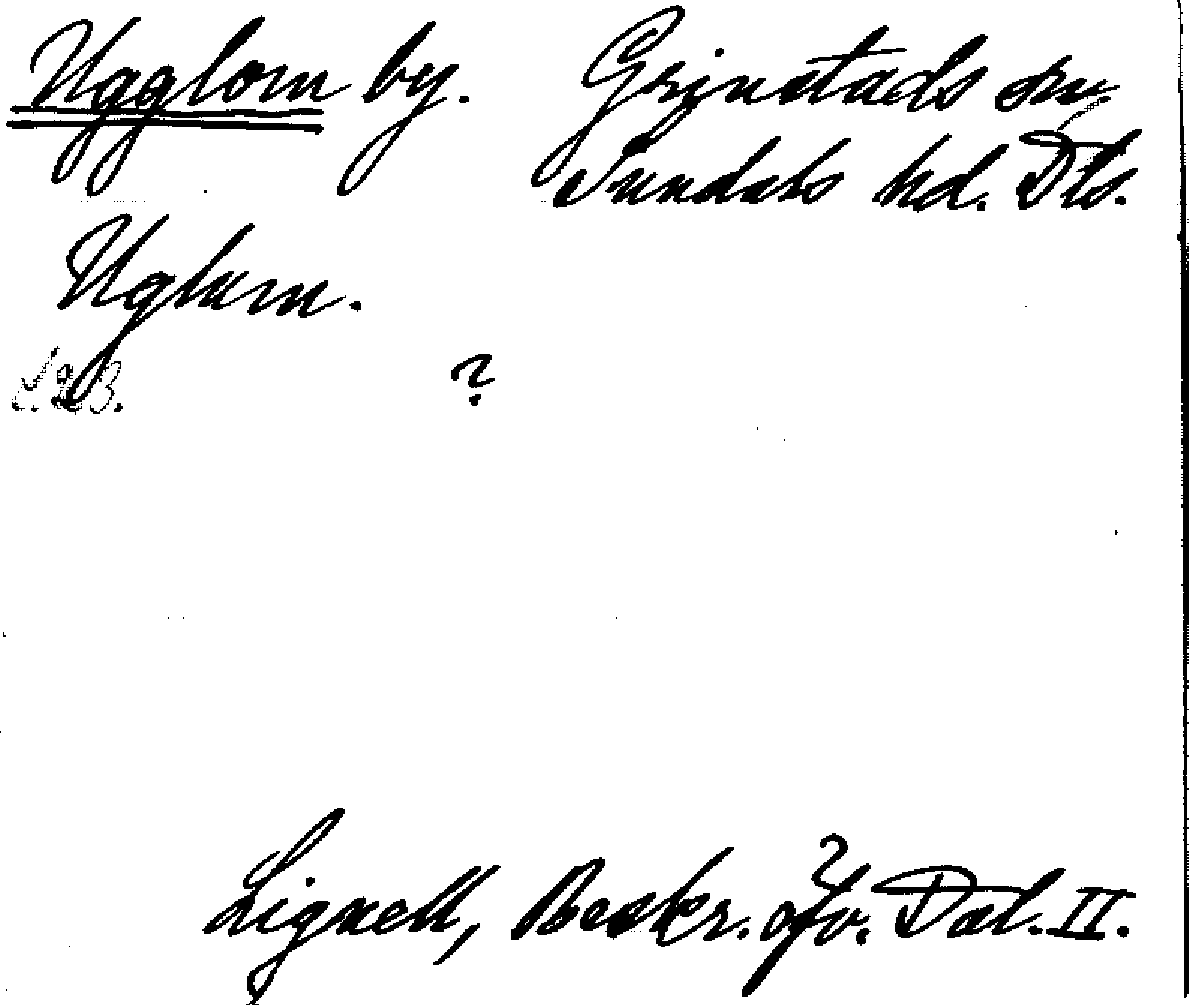 Ugglom by. Grinstads sn
Sundals hd. Dls.
Uglum.
S. 23. ?
Lignell, Beskr. öfv. Dal. II.